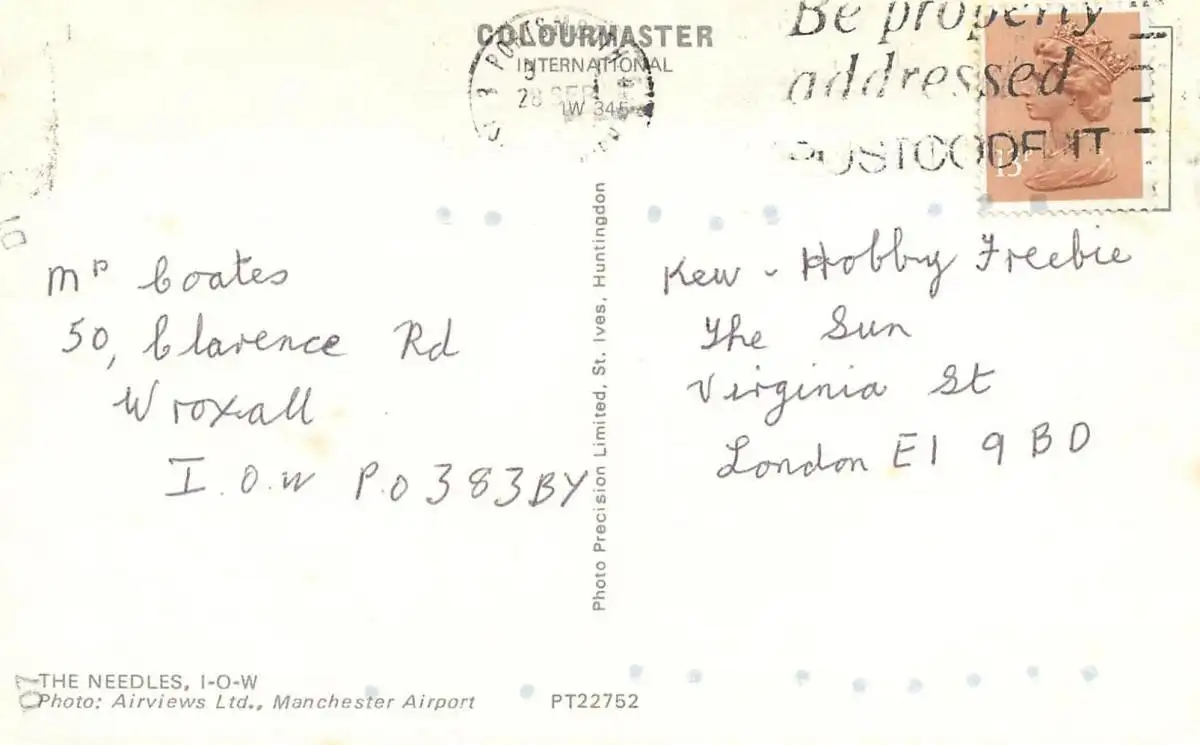 COLOURMASTER
INTERNATIONAL
28 SEP
IW 345
Be properly
addressed
POSTCODE IT
13P
Mr Coates
50, Clarence Rd
Wroxall
I.O.W P.O383BY
Photo Precision Limited, St. Ives, Huntingdon
Kew - Hobby Freebie
The Sun
Virginia St
London E1 9BD
THE NEEDLES, I-O-W
Photo: Airviews Ltd., Manchester Airport
PT22752